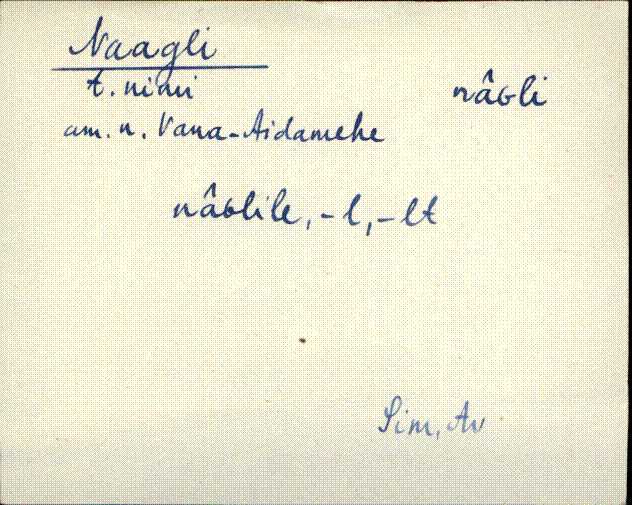 Naagli
t. nimi nâɢli
am. n. Vana-Aidamehe
nâɢlile, -l, -lt
Sim, Av